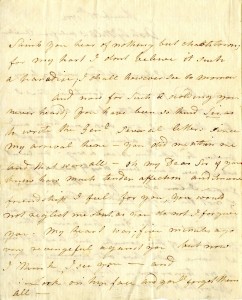 Smith you hear of nothing but
for my part I don't believe it such
a I shall however see to morrow
and now for such a
never heard you have been so kind Sir as
to write the Gen'l several letters since
my arrival there - you did mention me
and that was all - ah my Dear Sir if you
knew how much tender affection and sincere
friendship I feel for you, you would
not neglect me but as you do not I forgive
you - My heart was five minutes ago
very revengeful against you but now
I think I see you - and
look on my face and you forget them
all -